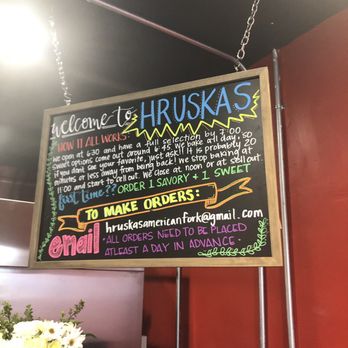 welcome to HRUSKAS
HOW IT ALL WORKS
We open at 6:30 and have a full selection by 7:00
sweet options come out around 6:45 We bake all day, so
if you dont see your favorite, just ask! It is probably 20
minutes or less away from being back! We stop baking at
11:00 and start to sell out. We close at noon or at sell out.
first time?? ORDER 1 SAVORY + 1 SWEET
TO MAKE ORDERS:
email hruskasamericanfork@gmail.com
• ALL ORDERS NEED TO BE PLACED
ATLEAST A DAY IN ADVANCE •